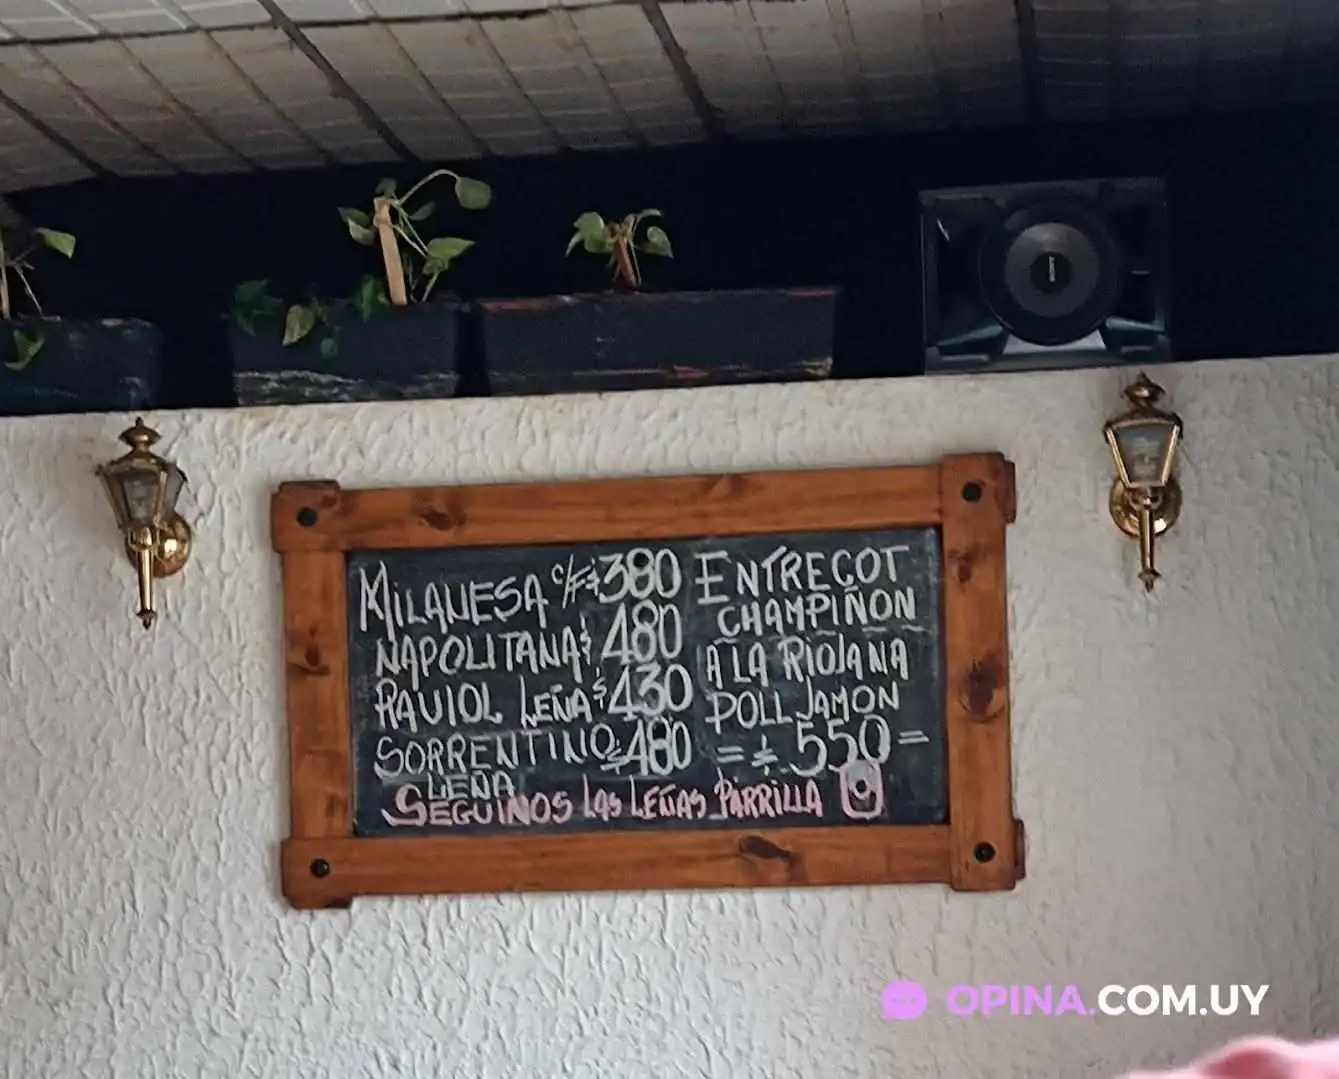 MILANESA C/F $380
NAPOLITANA $480
RAVIOL LEÑA $430
SORRENTINO $480
LEÑA
ENTRECOT
CHAMPIÑON
A LA RIOJANA
POLL JAMON
= $ 550 =
SEGUINOS LAS LEÑAS PARRILLA
OPINA.COM.UY